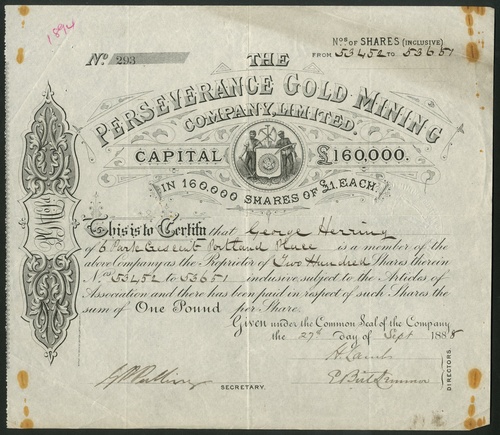 1894
Nº 293
Nos OF SHARES (INCLUSIVE)
FROM 53452 TO 53651
THE
PERSEVERANCE GOLD MINING
COMPANY, LIMITED.
CAPITAL £160,000.
IN 160,000 SHARES OF £1. EACH
This is to Certify that George Herring
of 6 Park Crescent Portland Place is a member of the
above Company as the Proprietor of Two Hundred Shares therein
Nos 53452 to 53651 inclusive, subject to the Articles of
Association and there has been paid in respect of such Shares the
sum of One Pound per Share.
Given under the Common Seal of the Company
the 27th day of Sept 1888
DIRECTORS.
SECRETARY.